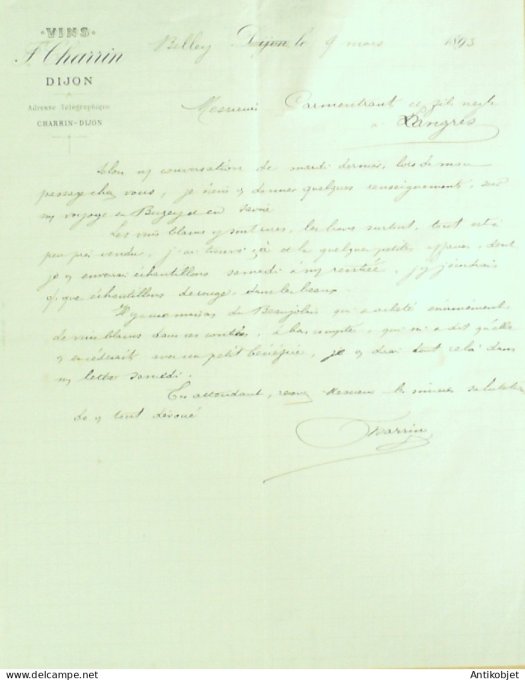 VINS
F. Charrin
DIJON
Adresse Télégraphique
CHARRIN-DIJON
Belley Dijon, le 9 mars 1893
Messieurs Parmentrant et
à Langres
conversation de mardi dernier, lors de mon
passage chez vous, je viens donner quelques renseignements sur
voyage en Bugey et en Savoie
Les vins blancs y sont rares, les bons surtout, tout est à
peu près vendu, j'ai trouvé çà et là quelques petites affaires, dont
je enverrai échantillons samedi à ma rentrée, j'y joindrai
q. que échantillons de rouge, dans les beaux.
Il y a une maison du Beaujolais qui a acheté énormément
de vins blancs dans ces contrées, à bas comptes, qui m'a dit qu'elle
en céderait avec un petit bénéfice, je dirai tout cela dans
ma lettre samedi.
En attendant, recevez Messieurs les sincères salutations
de tout dévoué
Charrin
Antikobjet.com